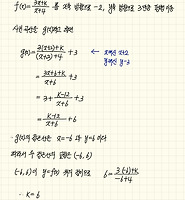 f(x)= 3x+k / x+4 를 x축 방향으로 -2, y축 방향으로 3만큼 평행 이동
시킨 곡선을 g(x)라고 하면
g(x)= 3(x+2)+k / (x+2)+4 +3 ← x대신 x+2 y대신 y-3
= 3x+6+k / x+6 +3
= 3+ k-12 / x+6 +3
= k-12 / x+6 +6
g(x)의 점근선은 x=-6 과 y=6 이다
따라서 두 점근선의 교점은 (-6, 6)
(-6, 6)이 y=f(x) 위의 점이므로 6= 3(-6)+k / -6+4
∴ k=6